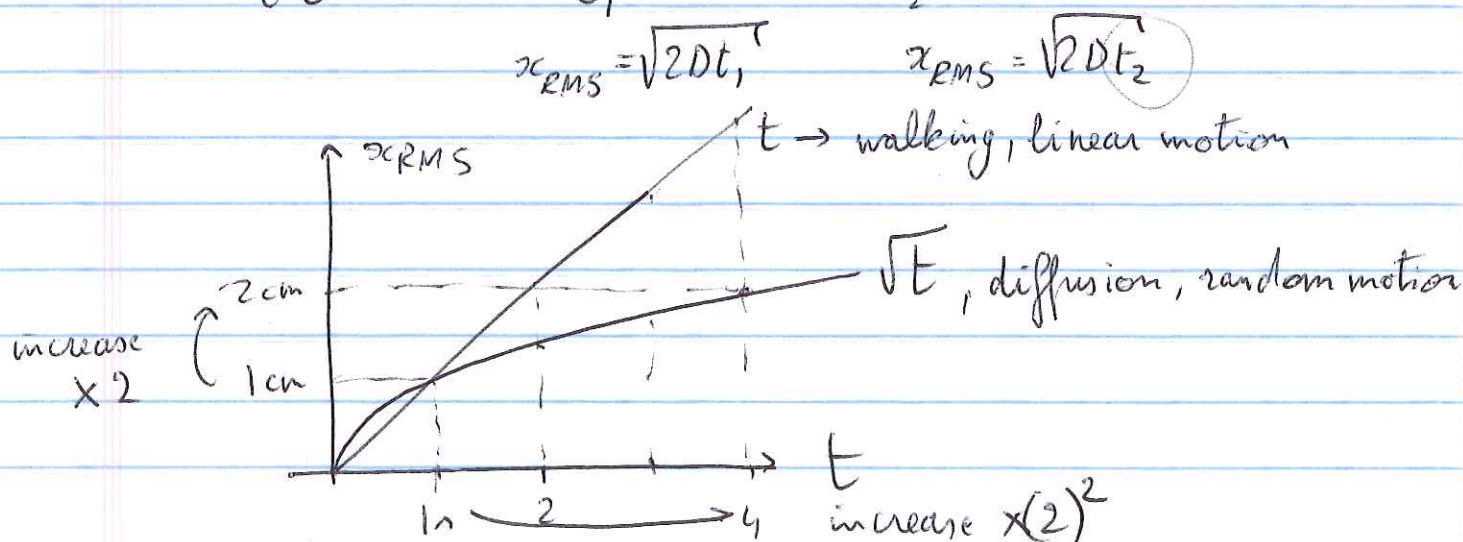 x_RMS = √2Dt₁ x_RMS = √2Dt₂
x_RMS
t → walking, linear motion
√t, diffusion, random motion
2cm
increase
x2
1cm
t
1s 2 4 increase x(2)²